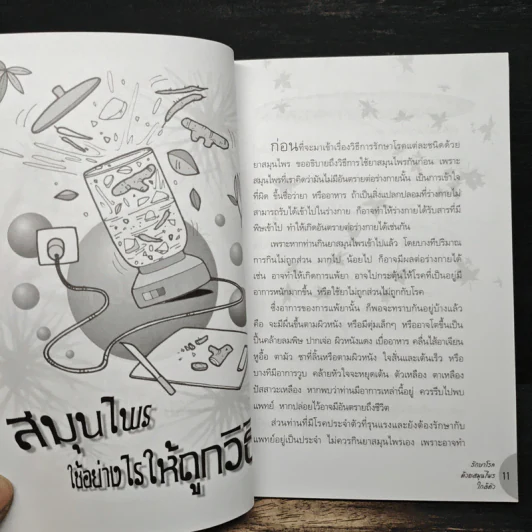 สมุนไพร
ใช้อย่างไรให้ถูกวิธี
ก่อนที่จะมาเข้าเรื่องวิธีการรักษาโรคแต่ละชนิดด้วย
ยาสมุนไพร ขออธิบายถึงวิธีการใช้ยาสมุนไพรกันก่อน เพราะ
สมุนไพรที่เราคิดว่ามันไม่มีอันตรายต่อร่างกายนั้น เป็นการเข้าใจ
ที่ผิด ขึ้นชื่อว่ายา หรืออาหาร ถ้าเป็นสิ่งแปลกปลอมที่ร่างกายไม่
สามารถรับได้เข้าไปในร่างกาย ก็อาจทำให้ร่างกายได้รับสารที่มี
พิษเข้าไป ทำให้เกิดอันตรายต่อร่างกายได้เช่นกัน
เพราะหากท่านกินยาสมุนไพรเข้าไปแล้ว โดยบางทีปริมาณ
การกินไม่ถูกส่วน มากไป น้อยไป ก็อาจมีผลต่อร่างกายได้
เช่น อาจทำให้เกิดการแพ้ยา อาจไปกระตุ้นให้โรคที่เป็นอยู่มี
อาการหนักมากขึ้น หรือใช้ยาไม่ถูกส่วนไม่ถูกกับโรค
ซึ่งอาการของการแพ้ยานั้น ก็พอจะทราบกันอยู่บ้างแล้ว
คือ จะมีผื่นขึ้นตามผิวหนัง หรือมีตุ่มเล็กๆ หรืออาจโตขึ้นเป็น
ปื้นคล้ายลมพิษ ปากเจ่อ ผิวหนังแดง เบื่ออาหาร คลื่นไส้อาเจียน
หูอื้อ ตามัว ชาที่ลิ้นหรือตามผิวหนัง ใจสั่นและเต้นเร็ว หรือ
บางทีมีอาการวูบ คล้ายหัวใจจะหยุดเต้น ตัวเหลือง ตาเหลือง
ปัสสาวะเหลือง หากพบว่าท่านมีอาการเหล่านี้อยู่ ควรรีบไปพบ
แพทย์ หากปล่อยไว้อาจมีอันตรายถึงชีวิต
ส่วนท่านที่มีโรคประจำตัวที่รุนแรงและยังต้องรักษากับ
แพทย์อยู่เป็นประจำ ไม่ควรกินยาสมุนไพรเอง เพราะอาจทำ
รักษาโรค
ด้วยสมุนไพร
ใกล้ตัว
11